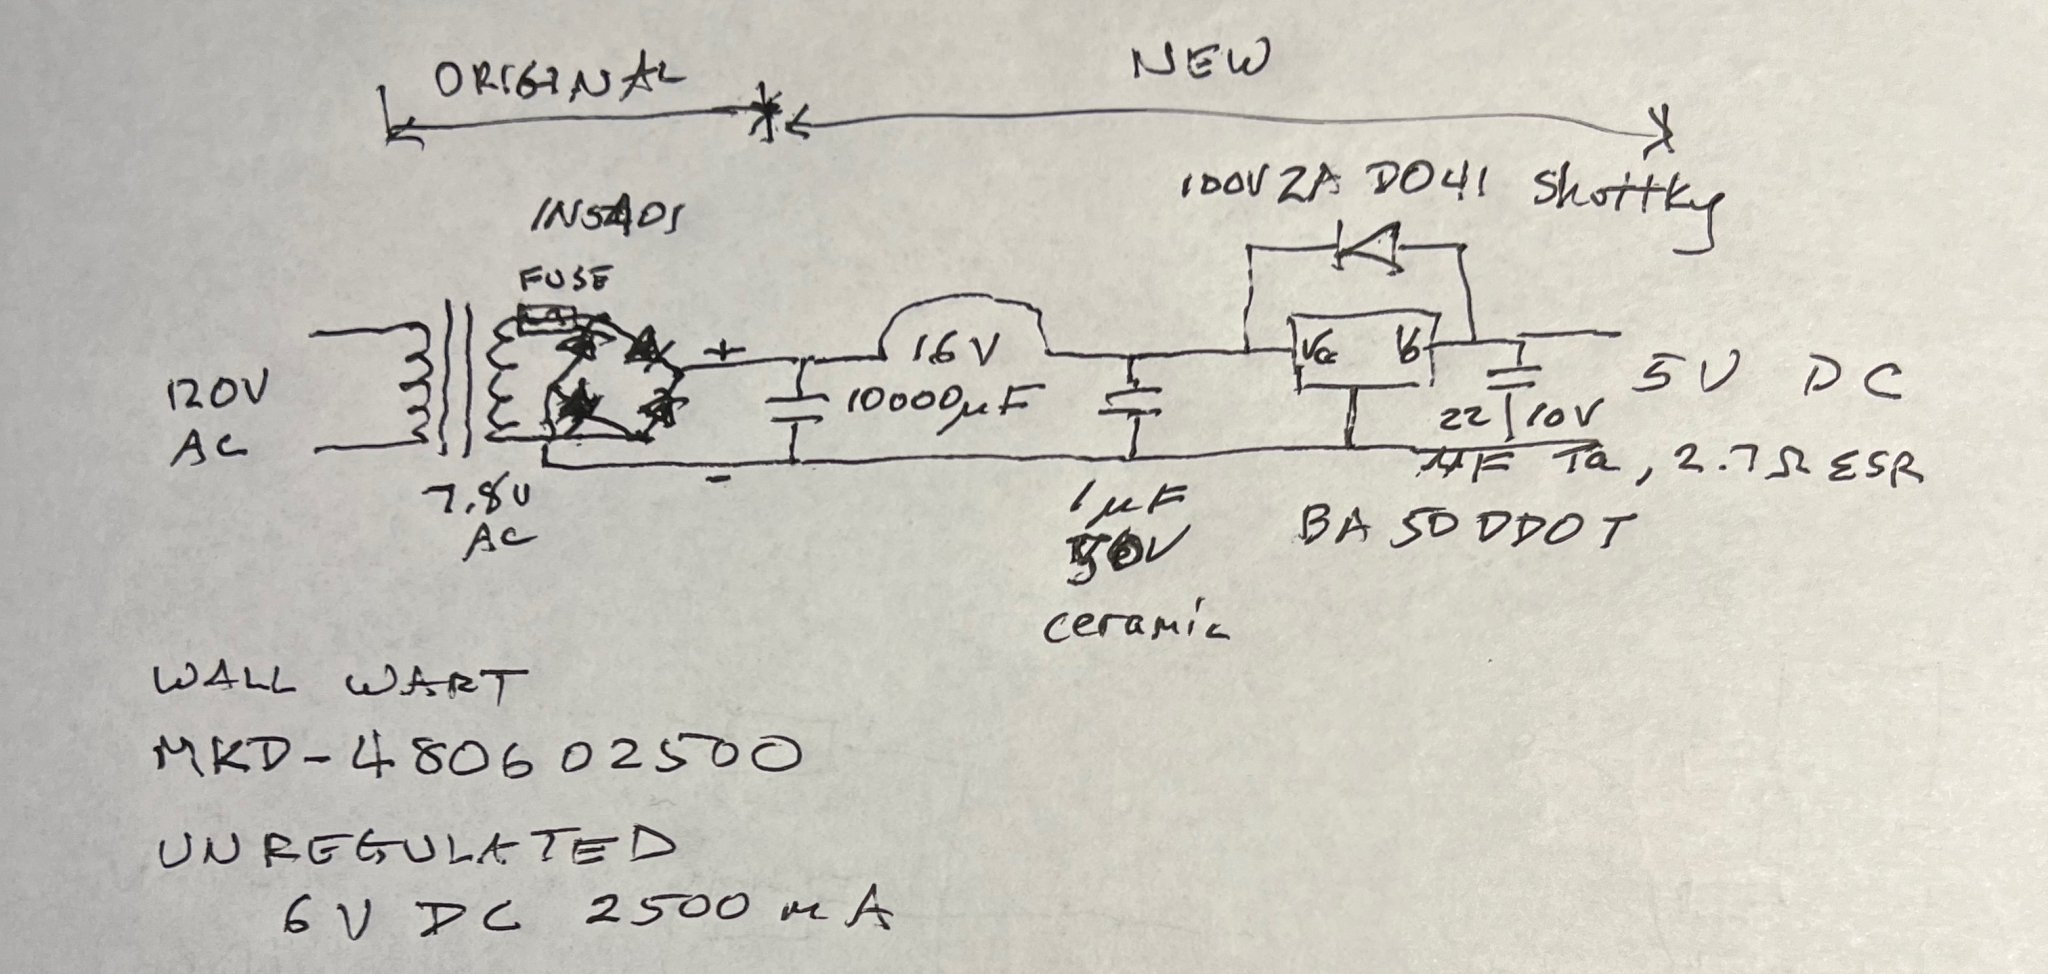 ORIGINAL
NEW
100V 2A DO41 Shottky
1N5401
FUSE
+
16V
Vcc Vo
120V
AC
10000µF
5V DC
22/10V
µF Ta, 2.7Ω ESR
-
7.8V
AC
1µF
50V
ceramic
BA50DD0T
WALL WART
MKD-480602500
UNREGULATED
6V DC 2500mA